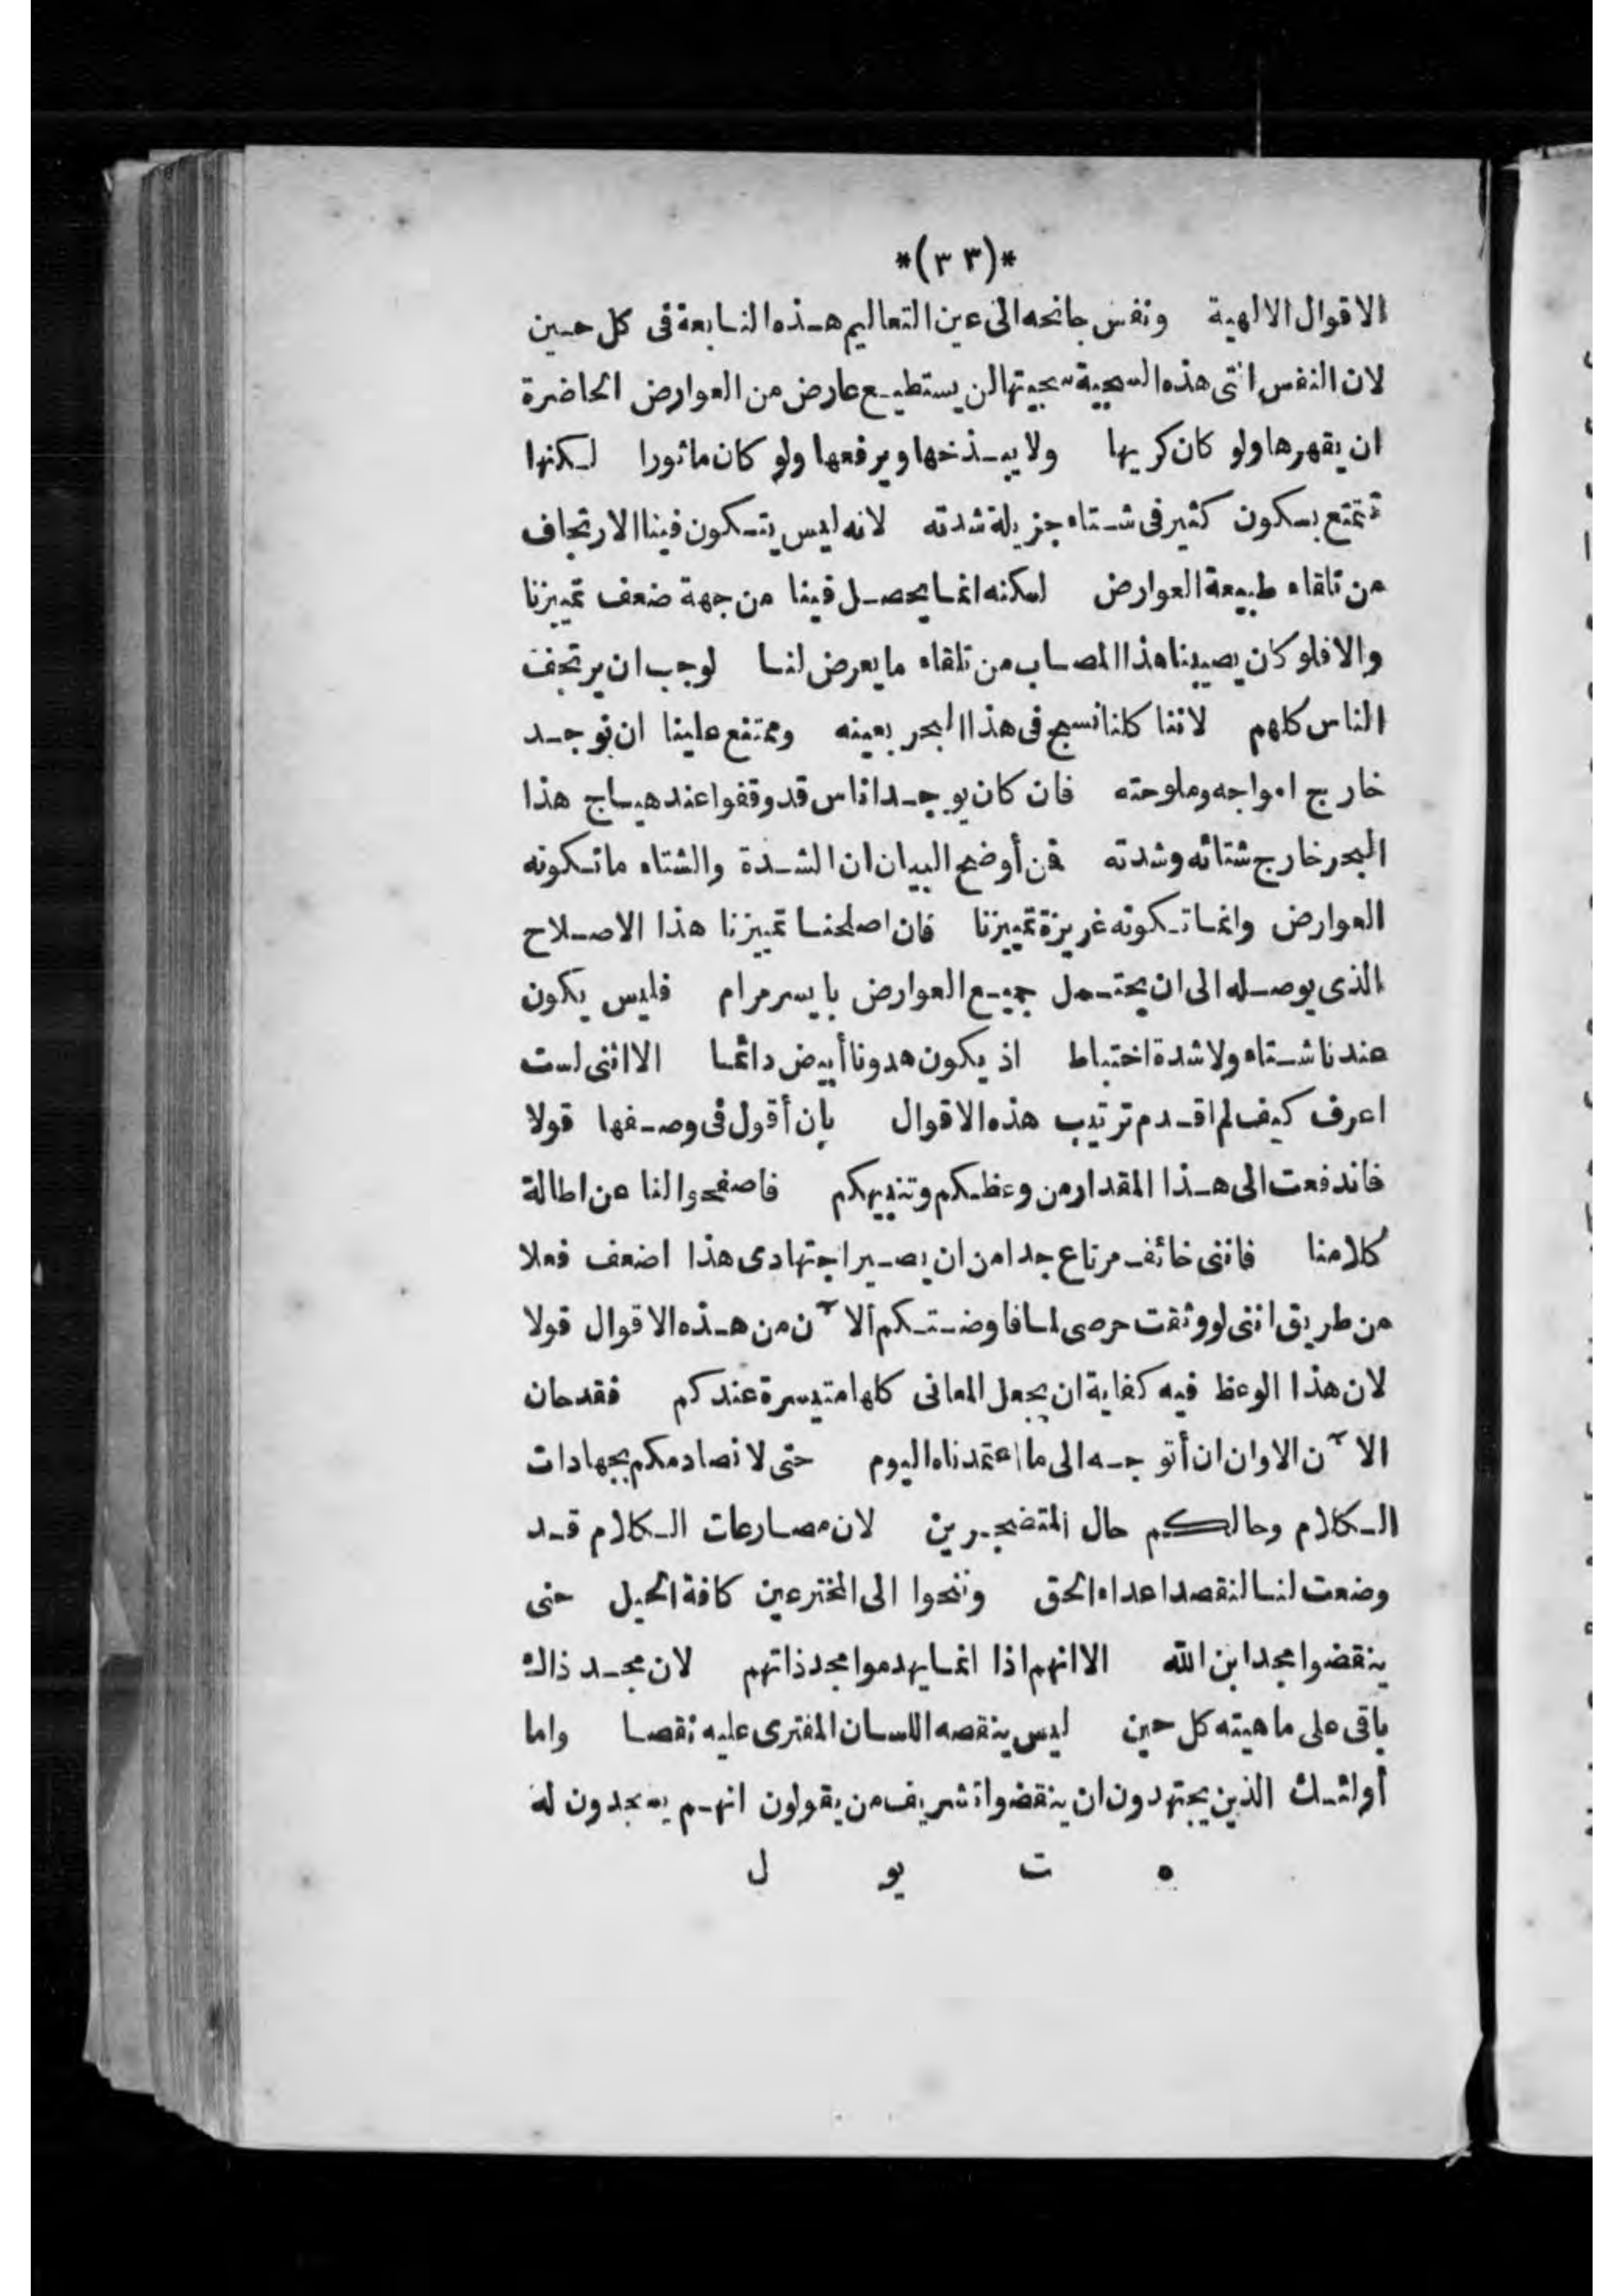 *(٣٣)*
الاقوال الالهية ونفس جانحه الى عين التعاليم هذه النابعة فى كل حين
لان النفس التى هذه السجية سجيتها لن يستطيع عارض من العوارض الحاضرة
ان يقهرها ولو كان كريها ولا يبذخها ويرفعها ولو كان ماثورا لكنها
تتمتع بسكون كثير فى شتاء جزيلة شدته لانه ليس يتكون فينا الارتجاف
من تلقاء طبيعة العوارض لكنه انما يحصل فينا من جهة ضعف تمييزنا
والا فلو كان يصيبنا هذا المصاب من تلقاء ما يعرض لنا لوجب ان يرتجف
الناس كلهم لاننا كلنا نسبح فى هذا البحر بعينه وممتنع علينا ان نوجد
خارج امواجه وملوحته فان كان يوجد اناس قد وقفوا عند هياج هذا
البحر خارج شتائه وشدته فمن أوضح البيان ان الشدة والشتاء ما تكونه
العوارض وانما تكونه غريزة تمييزنا فان اصلحنا تمييزنا هذا الاصلاح
الذى يوصله الى ان يحتمل جميع العوارض بايسر مرام فليس يكون
عندنا شتاء ولا شدة اختباط اذ يكون هدونا أبيض دائما الا اننى لست
اعرف كيف لم اقدم ترتيب هذه الاقوال بان أقول فى وصفها قولا
فاندفعت الى هذا المقدار من وعظكم وتنبيهكم فاصفحوا لنا عن اطالة
كلامنا فاننى خائف مرتاع جدا من ان يصير اجتهادى هذا اضعف فعلا
من طريق اننى لو وثقت حرصى لما فاوضتكم الآن من هذه الاقوال قولا
لان هذا الوعظ فيه كفاية ان يجعل المعانى كلها متيسرة عندكم فقد حان
الآن الاوان ان أتوجه الى ما اعتمدناه اليوم حتى لا نصادمكم بجهادات
الكلام وحالكم حال المتضجرين لان مصارعات الكلام قد
وضعت لنا لنقصد اعداء الحق وننحوا الى المخترعين كافة الحيل حتى
ينقضوا مجد ابن الله الا انهم اذا انما يهدموا مجد ذاتهم لان مجد ذاك
باقى على ماهيته كل حين ليس ينقصه اللسان المفترى عليه نقصا واما
أولئك الذين يجتهدون ان ينقضوا تشريف من يقولون انهم يسجدون له
٥ ت يو ل